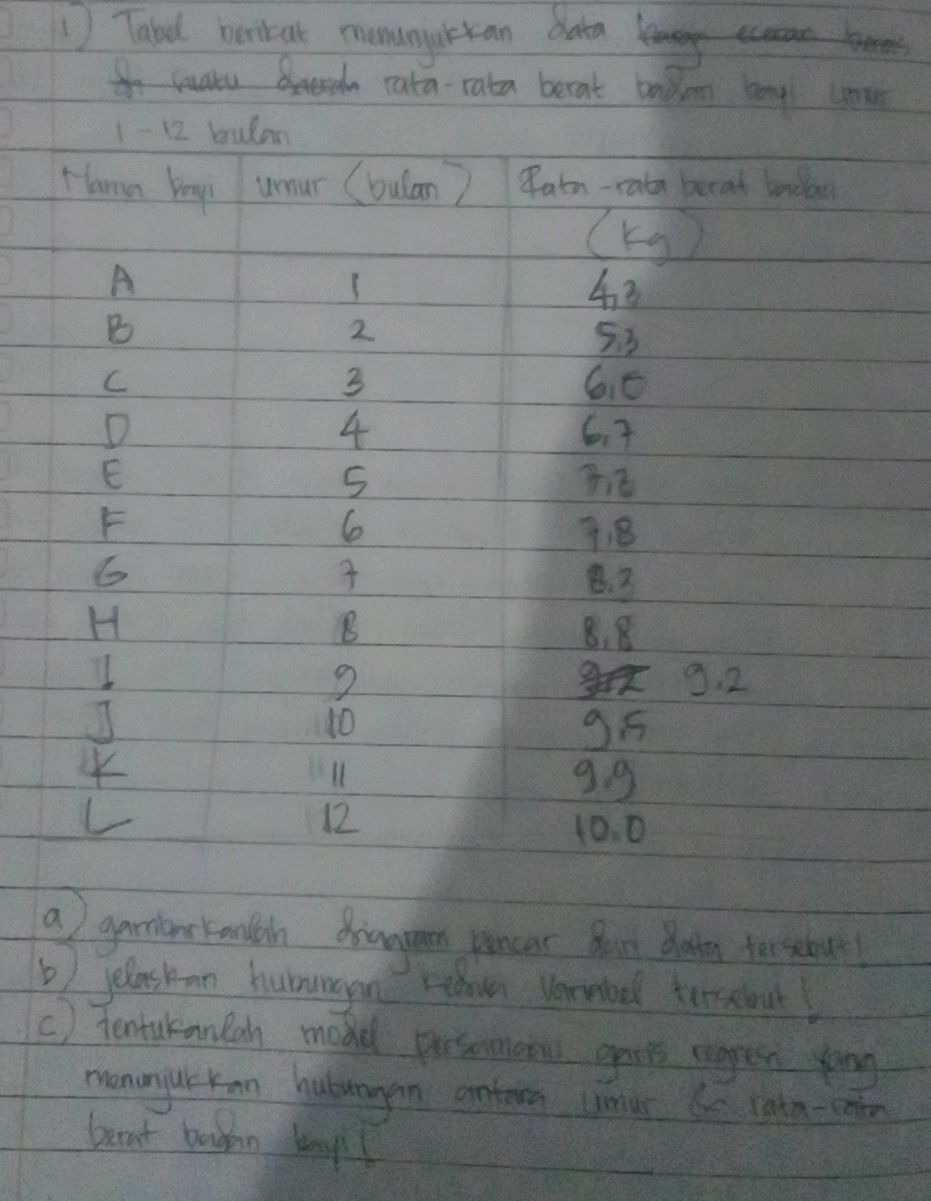 1) Tabel berikut menunjukkan data
suatu daerah rata-rata berat badan bayi umur
1-12 bulan
Nama bayi umur (bulan) Rata-rata berat badan
(Kg)
A 1 4,3
B 2 5,3
C 3 6,0
D 4 6,7
E 5
F 6 7,8
G 7 8.3
H 8 8,8
I 9 9.2
J 10 9,5
K 11 9.9
L 12 10.0
a) gambarkanlah diagram pencar dari data tersebut!
b) jelaskan hubungan kedua variabel tersebut!
c) Tentukanlah model persamaan garis regresi yang
menunjukkan hubungan antara umur & rata-rata
berat badan bayi!